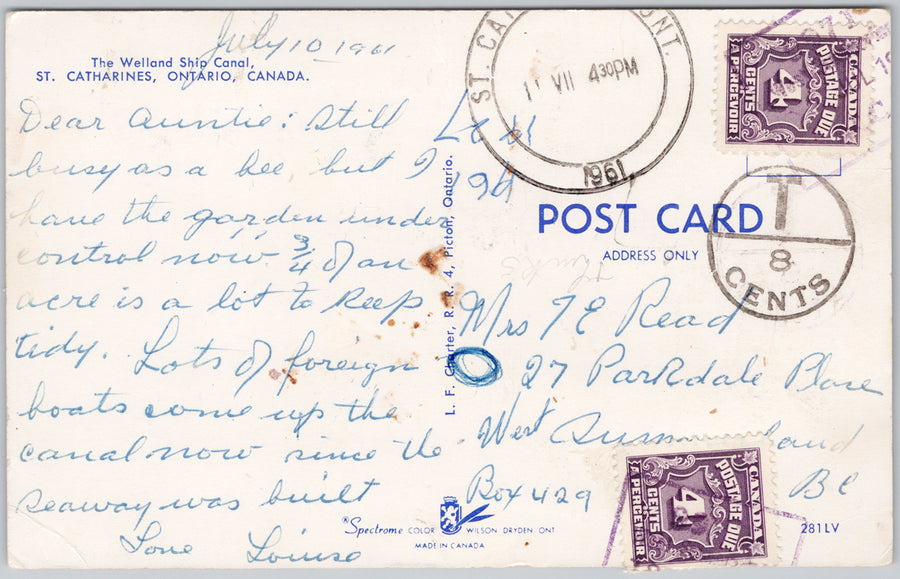 July 10 1961
The Welland Ship Canal,
ST. CATHARINES, ONTARIO, CANADA.
Dear Auntie: Still
busy as a bee, but I
have the garden under
control now 3/4 of an
acre is a lot to keep
tidy. Lots of foreign
boats come up the
canal now since the
seaway was built
Love Louise
L. F. Charter, R. R. 4, Picton, Ontario.
ST. CA ONT.
11 VII 430PM
1961
CANADA
POSTAGE DUE
4
CENTS
A PERCEVOIR
T
8
CENTS
POST CARD
ADDRESS ONLY
thanks
Mrs T E Read
27 Parkdale Place
West Summ land
Box 429 BC
CANADA
POSTAGE DUE
4
CENTS
A PERCEVOIR
Spectrome COLOR WILSON DRYDEN ONT
MADE IN CANADA
281LV